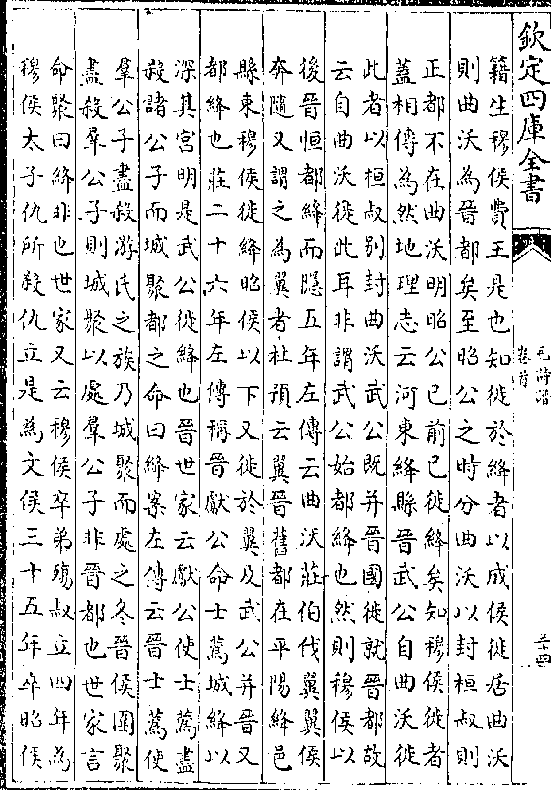 欽定四庫全書
毛詩譜
卷首
三十四
籍生穆侯費王是也知徙於絳者以成侯徙居曲沃
則曲沃為晉都矣至昭公之時分曲沃以封桓叔則
正都不在曲沃明昭公已前已徙絳矣知穆侯徙者
蓋相傳為然地理志云河東絳縣晉武公自曲沃徙
此者以桓叔别封曲沃武公既并晉國徙就晉都故
云自曲沃徙此耳非謂武公始都絳也然則穆侯以
後晉恒都絳而隱五年左傳云曲沃莊伯伐翼翼侯
奔隨又謂之為翼者杜預云翼晉舊都在平陽絳邑
縣東穆侯徙絳昭侯以下又徙於翼及武公并晉又
都絳也莊二十六年左傳稱晉獻公命士蔿城絳以
深其宫明是武公徙絳也晉世家云獻公使士蔿盡
殺諸公子而城聚都之命曰絳案左傳云晉士蔿使
羣公子盡殺游氏之族乃城聚而處之冬晉侯圍聚
盡殺羣公子則城聚以處羣公子非晉都也世家言
命聚曰絳非也世家又云穆侯卒弟殤叔立四年為
穆侯太子仇所殺仇立是為文侯三十五年卒昭侯